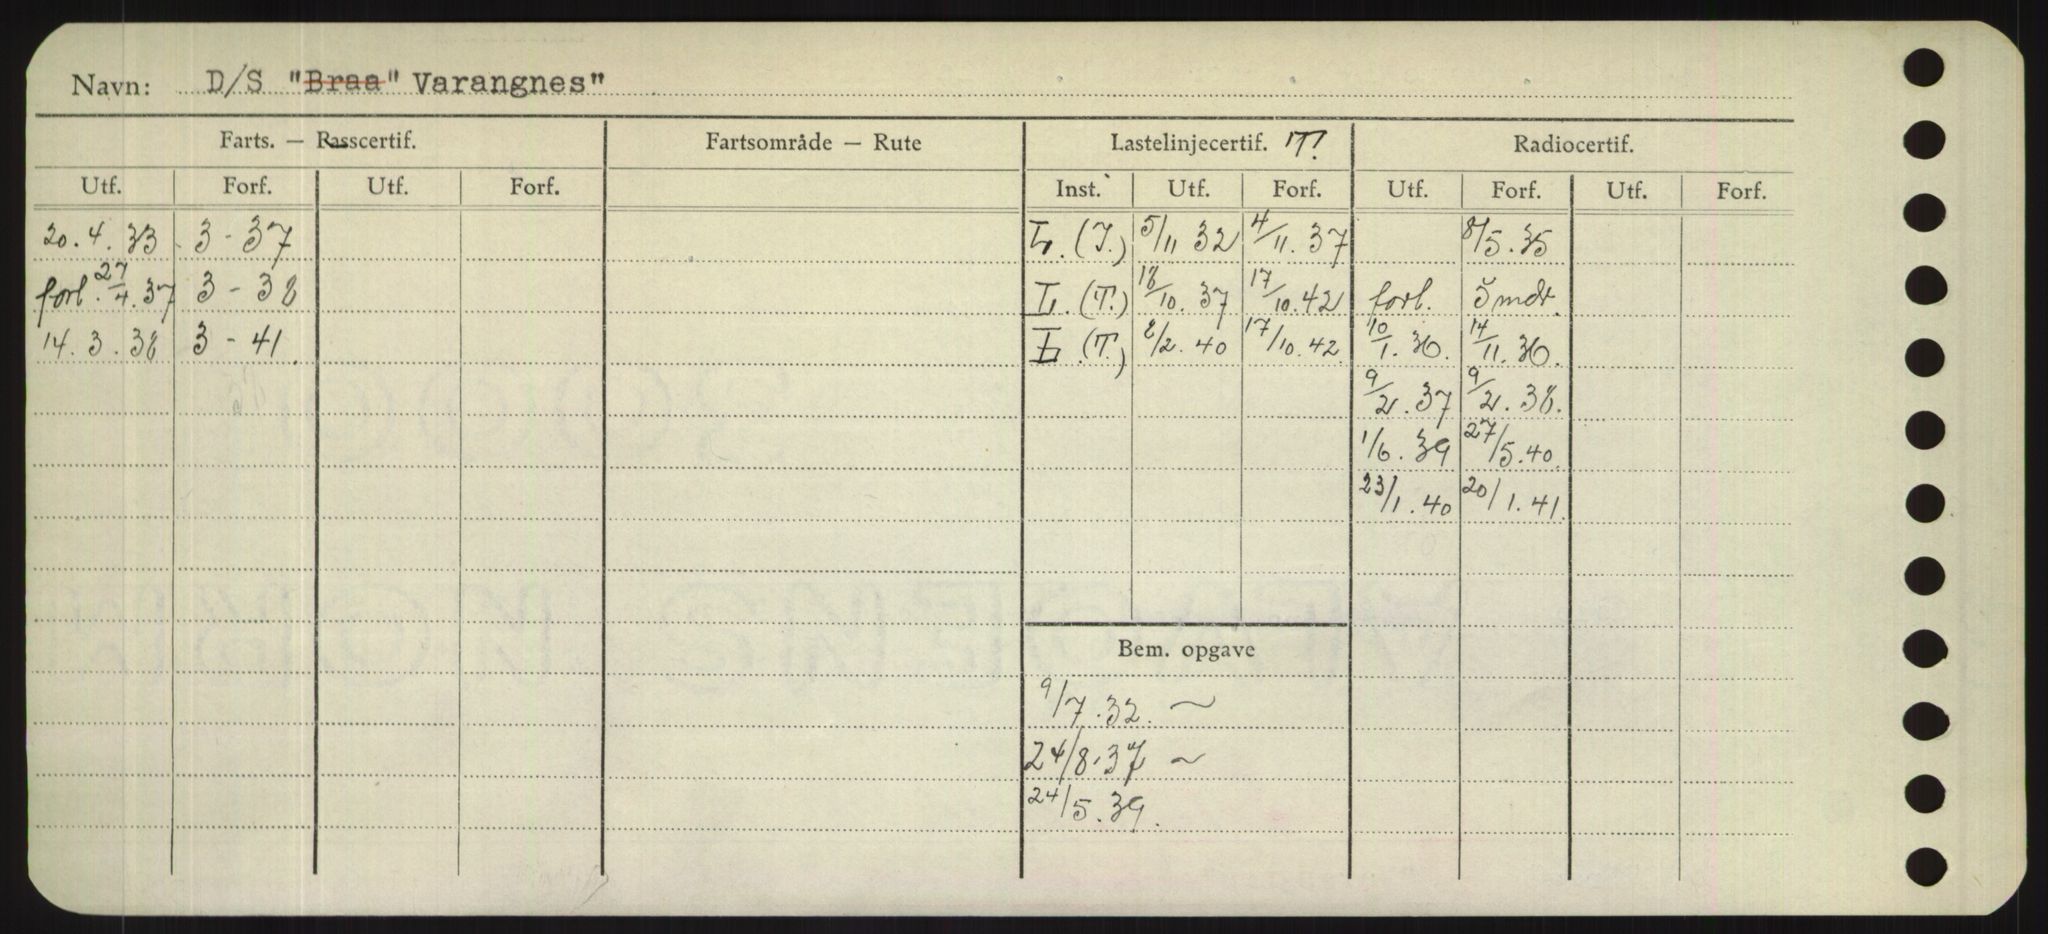 Navn: D/S "Braa" Varangnes"
Farts. — Passcertif. Fartsområde — Rute Lastelinjecertif. T! Radiocertif.
Utf. Forf. Utf. Forf. Inst. Utf. Forf. Utf. Forf. Utf. Forf.
20.4.33 3-37 L.(I.) 5/11 32 4/11.37 8/5.35
forl. 27/4.37 3-38 L.(T.) 18/10.37 17/10.42 forl. 5 mdr.
14.3.38 3-41. L.(T.) 2/2.40 17/10.42 10/1.36. 14/11.36.
9/2.37 9/2.38.
1/6.39 27/5.40.
23/1.40 20/1.41.
Bem. opgave
9/7.32. ~
24/8.37 ~
24/5.39.